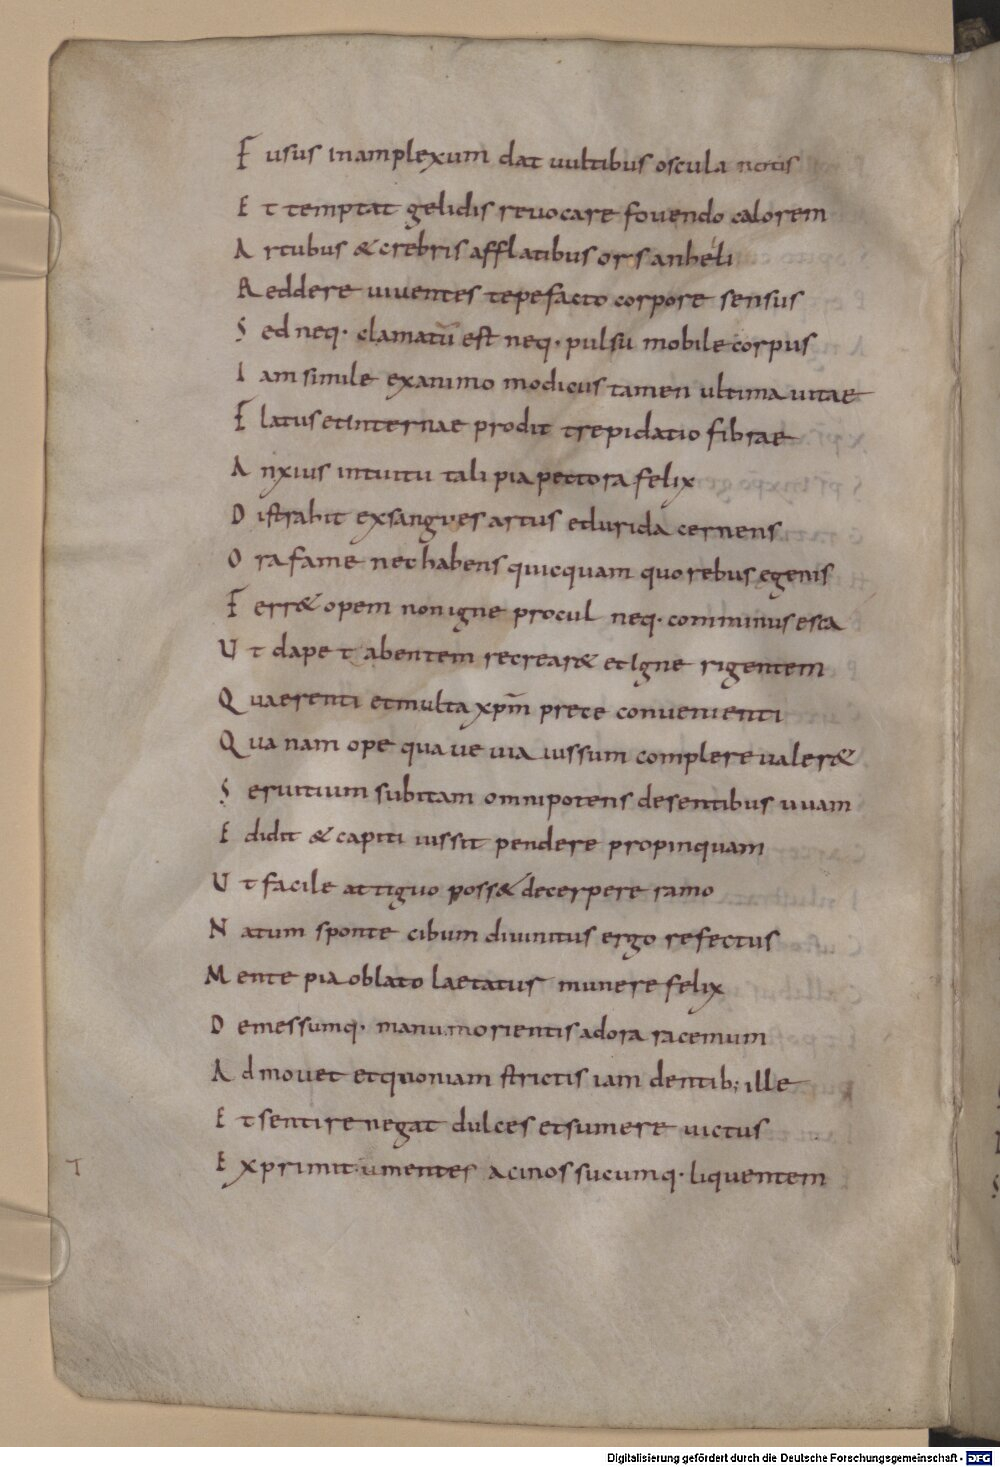 Fusus in amplexum dat uultibus oscula notis
Et temptat gelidis reuocare fouendo calorem
Artubus & crebris afflatibus oris anheli
Reddere uiuentes tepefacto corpore sensus
Sed neq· clamatū est neq· pulsu mobile corpus
Iam simile exanimo modicus tamen ultima uitae
Flatus et internae prodit trepidatio fibrae
Anxius intuitu tali pia pectora felix
Distrahit exsangues artus et urida cernens
Ora fame nec habens quicquam quo rebus egenis
Ferr& opem non igne procul neq· comminus esca
Ut dape tabentem recrear& et igne rigentem
Quaerenti et multa xpm̄ prece conuenienti
Qua nam ope qua ue uia iussum complere ualer&
Seruitium subitam omnipotens de sentibus uuam
Edidit & capiti iussit pendere propinquam
Ut facile attiguo poss& decerpere ramo
Natum sponte cibum diuinitus ergo refectus
Mente pia oblato laetatus munere felix
Demessumq· manu morientis ad ora racemum
Admouet et quoniam strictis iam dentib; ille
Et sentire negat dulces et sumere uictus
Exprimit umentes acinos sucumq· liquentem
T
Digitalisierung gefördert durch die Deutsche Forschungsgemeinschaft - DFG